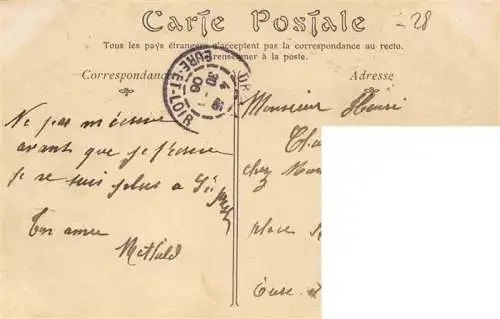 Carte Postale
-28
Tous les pays étrangers n'acceptent pas la correspondance au recto.
(Se renseigner à la poste.
Correspondance
Adresse
DR
4 15
30 - 1
06
EURE-ET-LOIR
Ne pas m'écrire
avant que je t'écrive
je ne suis plus a
Ton amie
Mathild
Monsieur Henri
chez
place
Eure